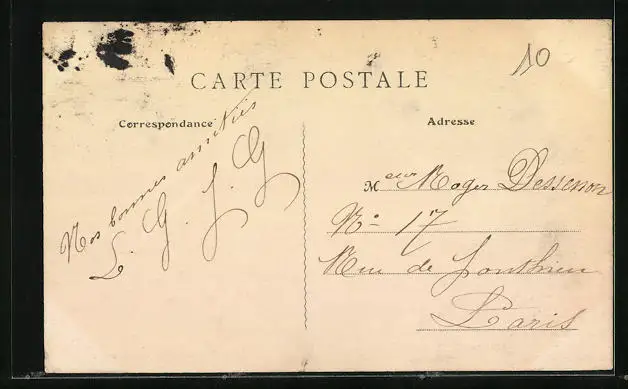 10
CARTE POSTALE
Correspondance
Adresse
Nos bonnes amitiés
L. G. J. G
Meur Roger Dessenon
No 17
Rue de Ponthieu
Paris